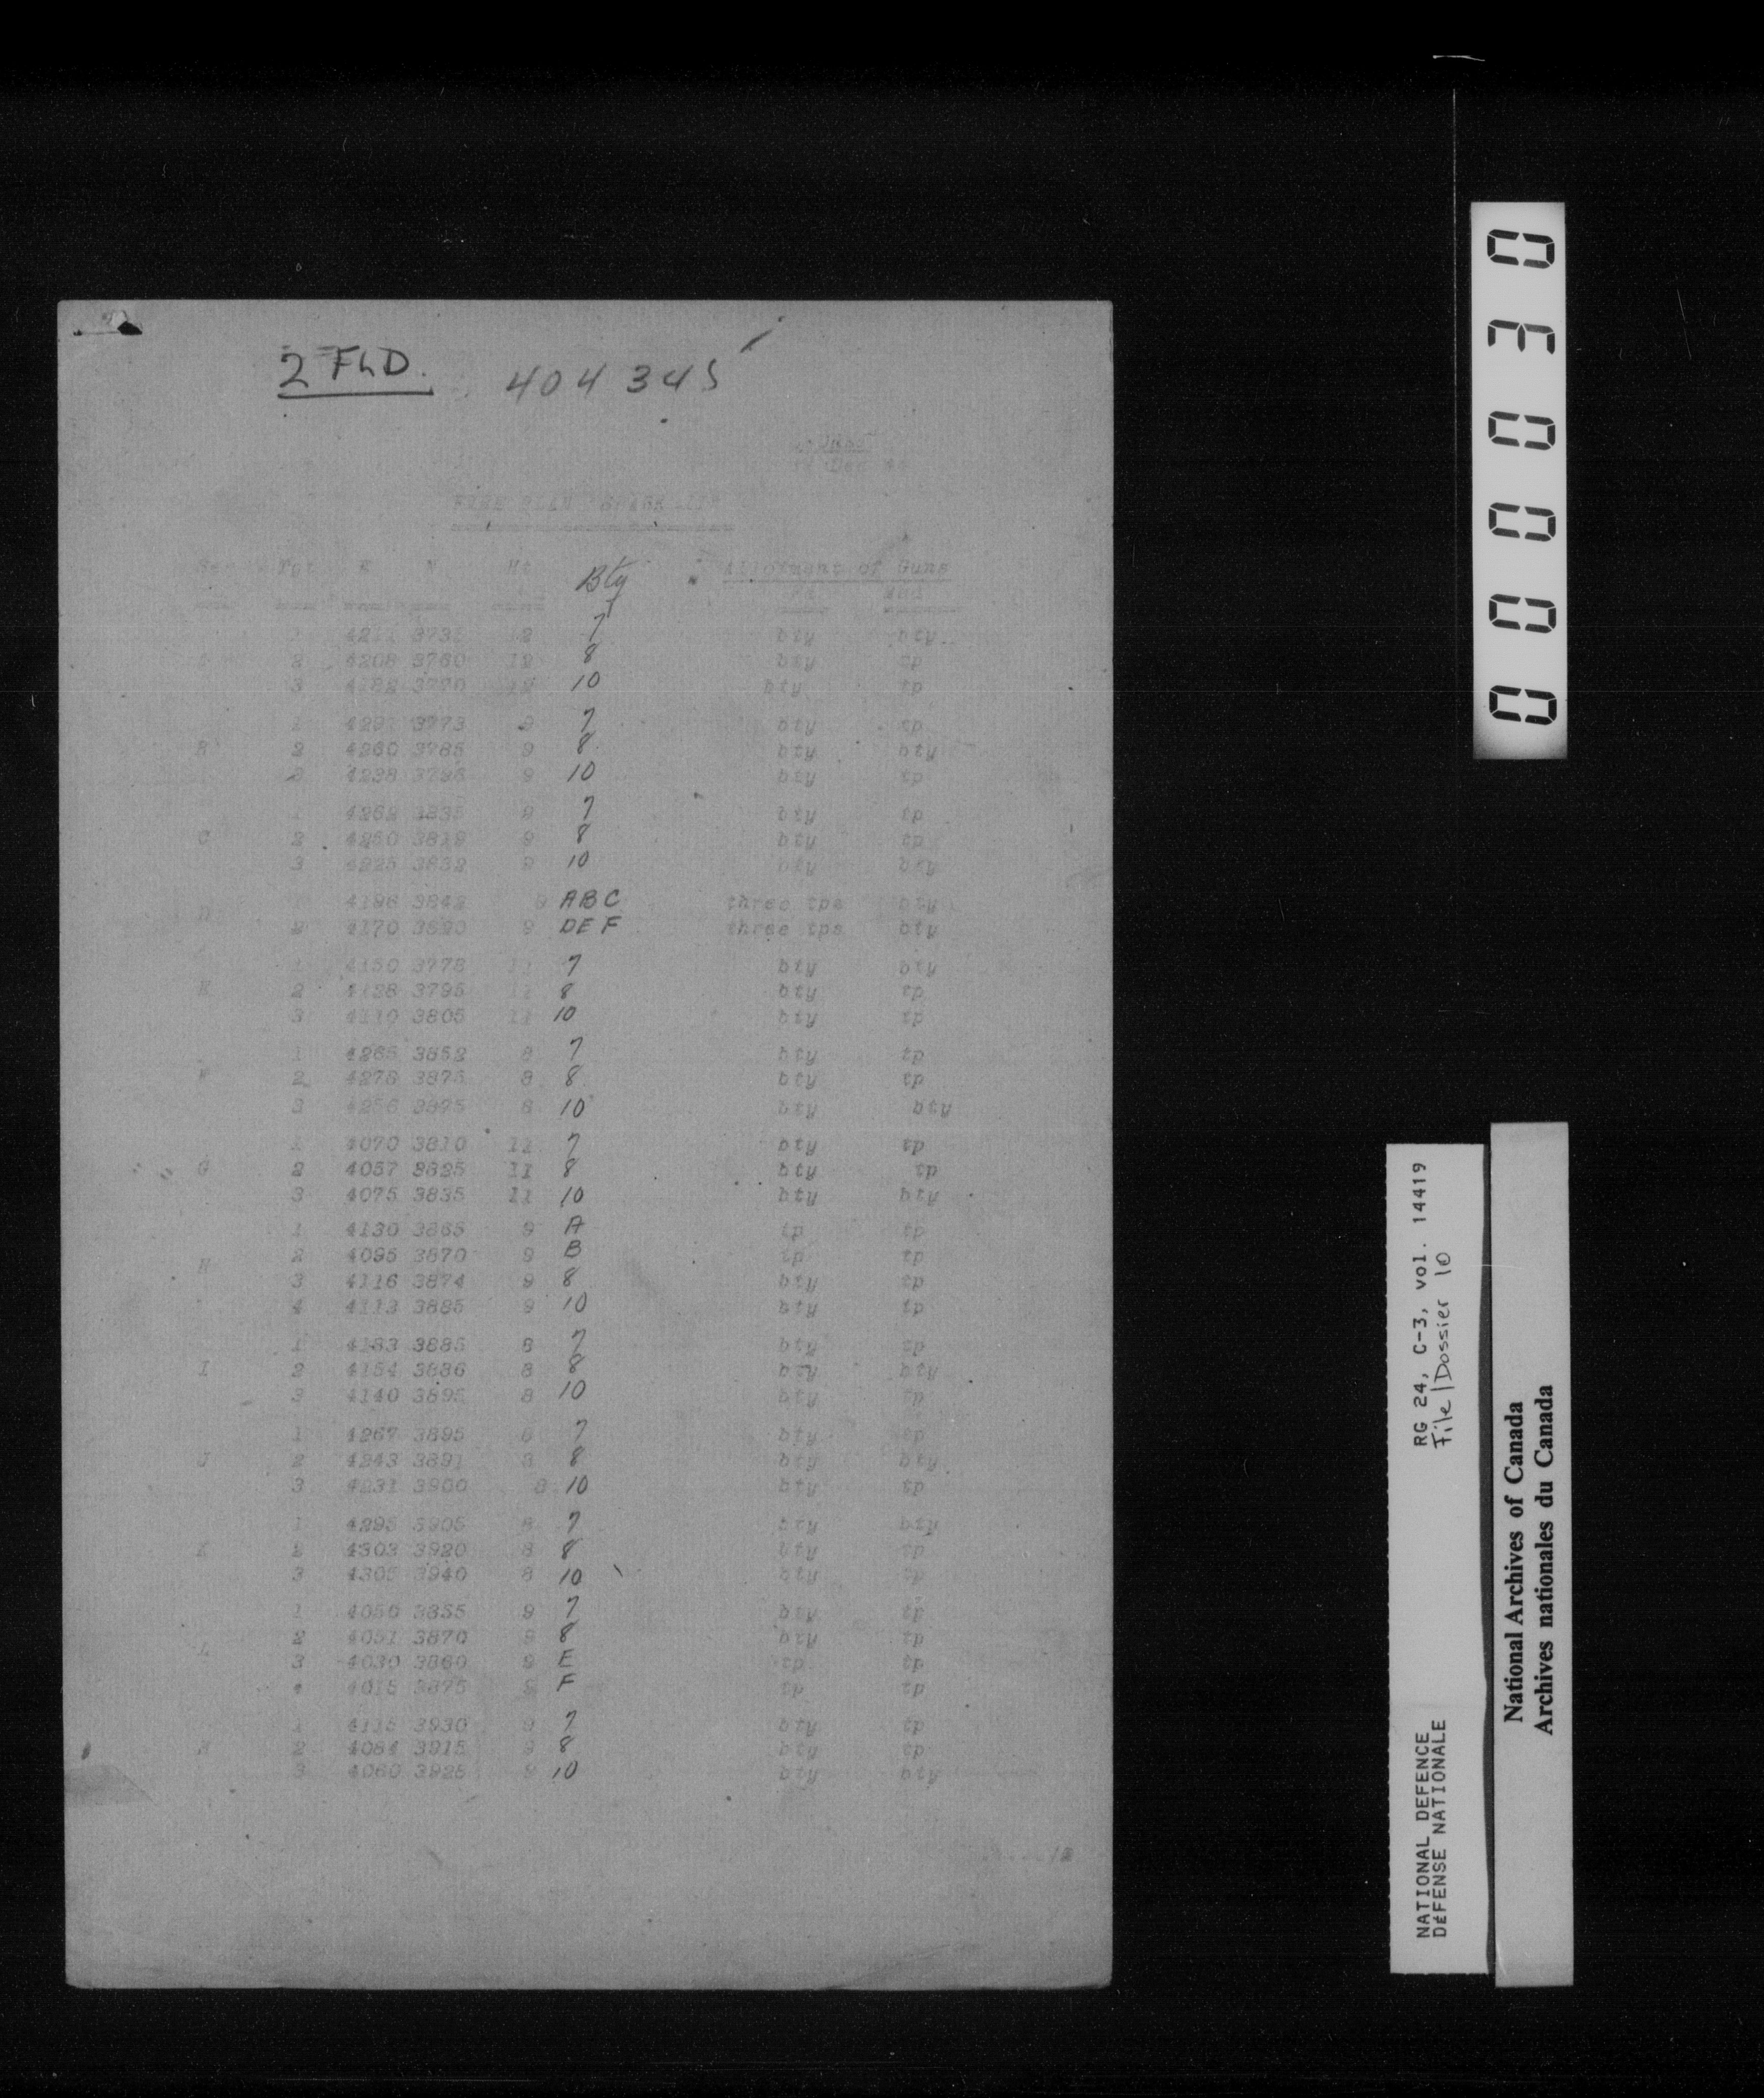 2 FLD. 404 345
Dec
FIRE PLAN
Ser Tgt E N Ht Bty Allotment of Guns
Fd Med
1 3735 7 bty bty
2 4208 3760 12 8 bty tp
3 10 bty tp
1 3773 9 7 bty tp
B 2 4260 3785 9 8 bty bty
4238 9 10 bty tp
1 4262 3835 7 bty tp
C 2 4250 3819 9 8 bty tp
3 4225 3832 10 bty bty
4196 3842 9 ABC three tps bty
D 2 4170 9 DEF three tps bty
4150 3778 11 7 bty bty
2 4128 3795 11 8 bty tp
3 4110 3805 11 10 bty tp
1 4265 3852 8 7 bty tp
2 4278 3875 8 8 bty tp
3 4256 8 10 bty bty
1 4070 3810 11 7 bty tp
G 2 4057 3825 11 8 bty tp
3 4075 3835 11 10 bty bty
1 4130 3865 9 A tp tp
2 4095 3870 9 B tp tp
H
3 4116 3874 9 8 bty tp
4 4113 3885 9 10 bty tp
1 4183 3885 8 7 bty tp
I 2 4154 3886 8 8 bty bty
3 4140 3895 8 10 bty tp
1 4267 3895 8 7 bty tp
J 2 4243 3891 8 8 bty bty
3 4231 3900 8 10 bty tp
1 4295 3905 8 7 bty bty
K 2 4303 3920 8 8 bty tp
3 4305 3940 8 10 bty tp
1 3855 9 7 bty tp
2 4051 3870 9 8 bty tp
L
3 4030 3860 9 E tp tp
4 4015 3875 9 F tp tp
1 4115 3930 9 7 bty tp
M 2 4084 3915 9 8 bty tp
3 4060 3925 9 10 bty bty
...../2
000030
RG 24, C-3, vol. 14419
File/Dossier 10
NATIONAL DEFENCE
DÉFENSE NATIONALE
National Archives of Canada
Archives nationales du Canada